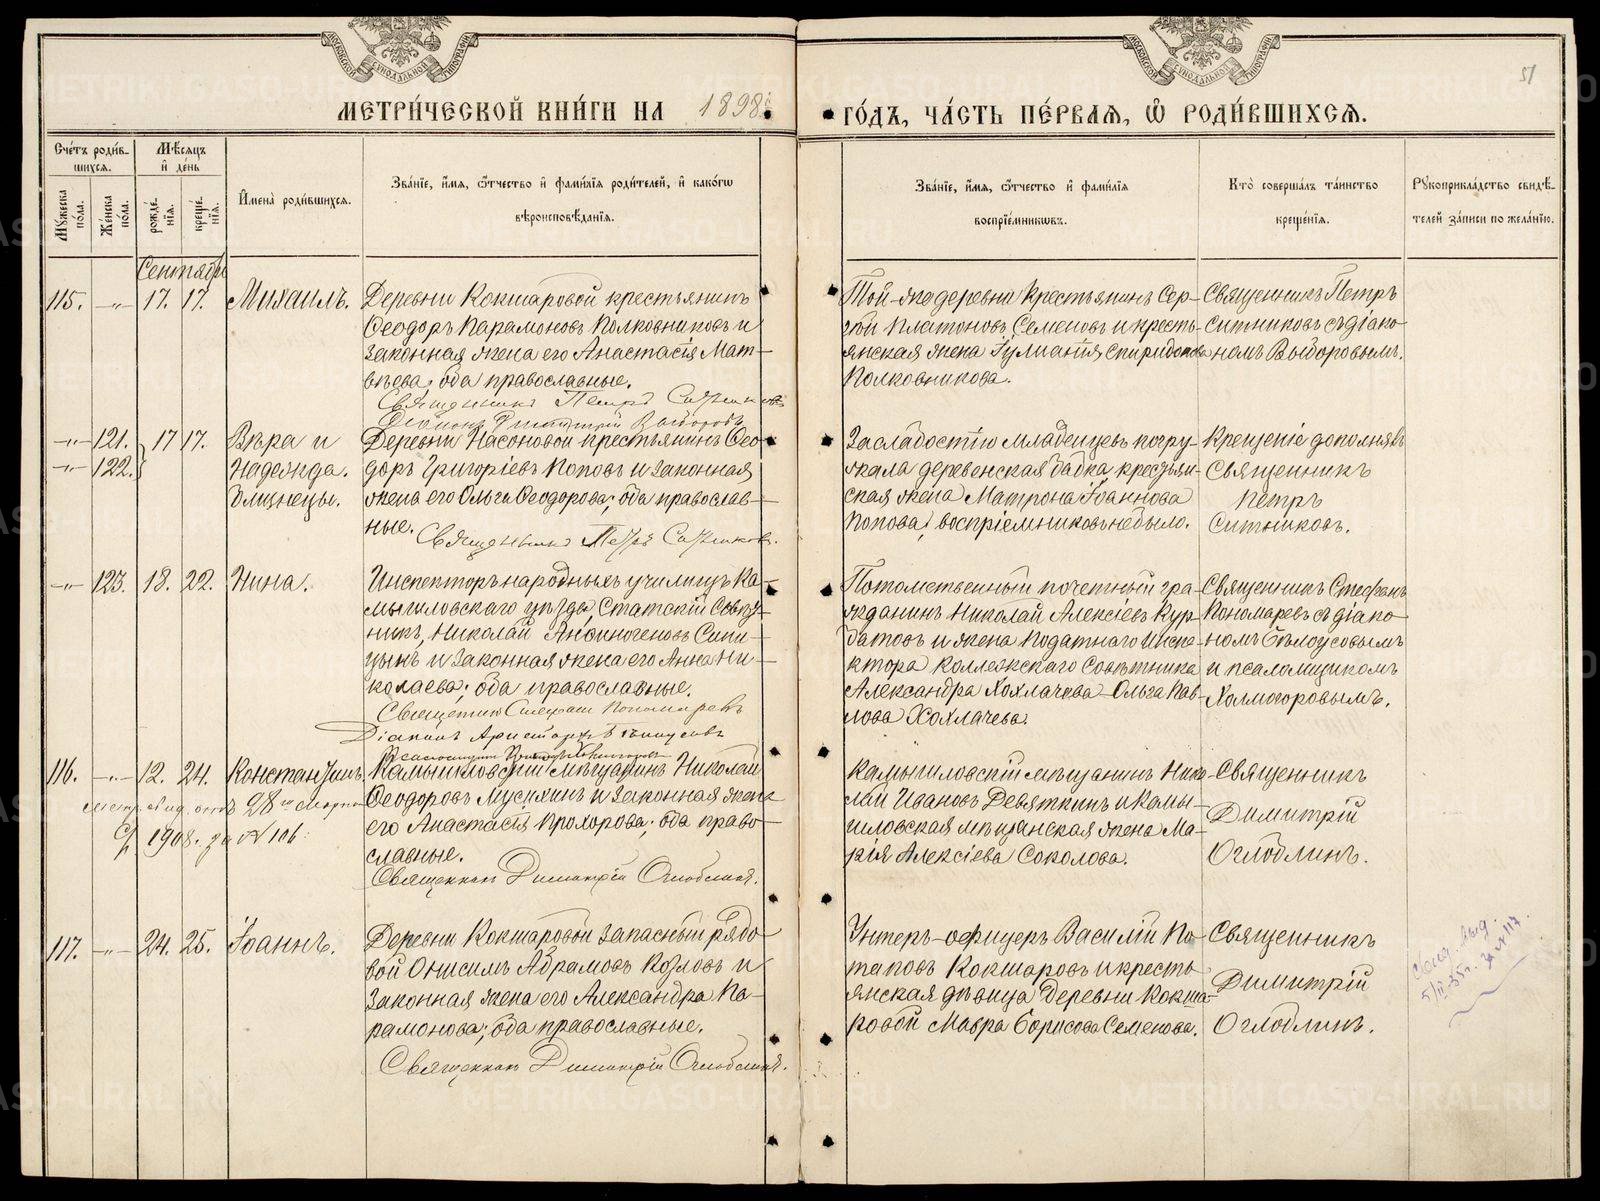 МОСКОВСКОЙ СѴНОДАЛЬНОЙ ТИПОГРАФІИ
МОСКОВСКОЙ СѴНОДАЛЬНОЙ ТИПОГРАФІИ
51
МЕТРИ́ЧЕСКОЙ КНИ́ГИ НА 1898
ГО́ДЪ, ЧА́СТЬ ПЕ́РВАЯ, Ѡ РОДИ́ВШИХСЯ.
Сче́тъ роди́в-
шихся.
Мꙋ́жеска по́ла.
Же́нска по́ла.
Мѣ́сяцъ
и҆ де́нь
рожде́-нїя.
креще́-нїя.
И҆мена̀ роди́вшихся.
Зва́нїе, и҆́мя, ѻ҆́тчество и҆ фами́лїя роди́телей, и҆ како́гѡ
вѣроисповѣ́данїя.
Зва́нїе, и҆́мя, ѻ҆́тчество и҆ фами́лїя
воспрїе́мникѡвъ.
Кто̀ соверша́лъ та́инство
креще́нїя.
Рꙋкоприкла́дство свидѣ́-
телей за́писи по жела́нїю.
Сентябр
115. —"— 17. 17. Михаилъ.
Деревни Кокшаровой крестьянинъ
Ѳеодоръ Парамоновъ Полковниковъ и
законная жена его Анастасія Мат-
вѣева; оба православные.
Священникъ Петръ Ситниковъ
Діаконъ Димитрій Выборовъ
Той-же деревни крестьянинъ Сер-
гѣй Платоновъ Семеновъ и кресть-
янская жена Іуліанія Спиридонова
Полковникова.
Священникъ Петръ
Ситниковъ съ діако-
номъ Выборовымъ.
—"— 121. 17 17. Вѣра и
—"— 122. Надежда.
близнецы.
Деревни Насоновой крестьянинъ Ѳео-
доръ Григоріевъ Поповъ и законная
жена его Ольга Ѳеодорова; оба православ-
ные.
Священникъ Петръ Ситниковъ.
За слабостію младенцевъ погру-
жала деревенская бабка крестьян-
ская жена Матрона Іоаннова
Попова; воспріемниковъ не было.
Крещеніе дополнялъ
Священникъ
Петръ
Ситниковъ.
—"— 123. 18. 22. Нина.
Инспекторъ народныхъ училищъ Ка-
мышловскаго уѣзда, Статскій Совѣт-
никъ, Николай Анѳиногеновъ Сини-
цынъ и законная жена его Анна Ни-
колаева; оба православные.
Священникъ Стефанъ Пономаревъ
Діаконъ Аристархъ Бѣлоусовъ
Потомственный почетный гра-
жданинъ Николай Алексіевъ Кур-
батовъ и жена Податнаго Инспе-
ктора Коллежскаго Совѣтника
Александра Хохлачева Ольга Пав-
лова Хохлачева.
Священникъ Стефанъ
Пономаревъ съ діако-
номъ Бѣлоусовымъ
и псаломщикомъ
Холмогоровымъ.
116. —"— 12. 24. Константинъ
метр. выд. отъ 28го Марта
1908. за № 106
Камышловскій мѣщанинъ Николай
Ѳеодоровъ Мусихинъ и законная жена
его Анастасія Прохорова; оба право-
славные.
Священникъ Димитрій Оглоблинъ.
Камышловскій мѣщанинъ Нико-
лай Ивановъ Девяткинъ и Камы-
шловская мѣщанская жена Ма-
рія Алексіева Соколова.
Священникъ
Димитрій
Оглоблинъ.
117. —"— 24. 25. Іоаннъ.
Деревни Кокшаровой запасный рядо-
вой Онисимъ Абрамовъ Козловъ и
законная жена его Александра Па-
рамонова; оба православные.
Священникъ Димитрій Оглоблинъ.
Унтеръ-офицеръ Василій По-
таповъ Кокшаровъ и кресть-
янская дѣвица Деревни Кокша-
ровой Мавра Борисова Семенова.
Священникъ
Димитрій
Оглоблинъ.
выд.
5/II 35г. за № 117